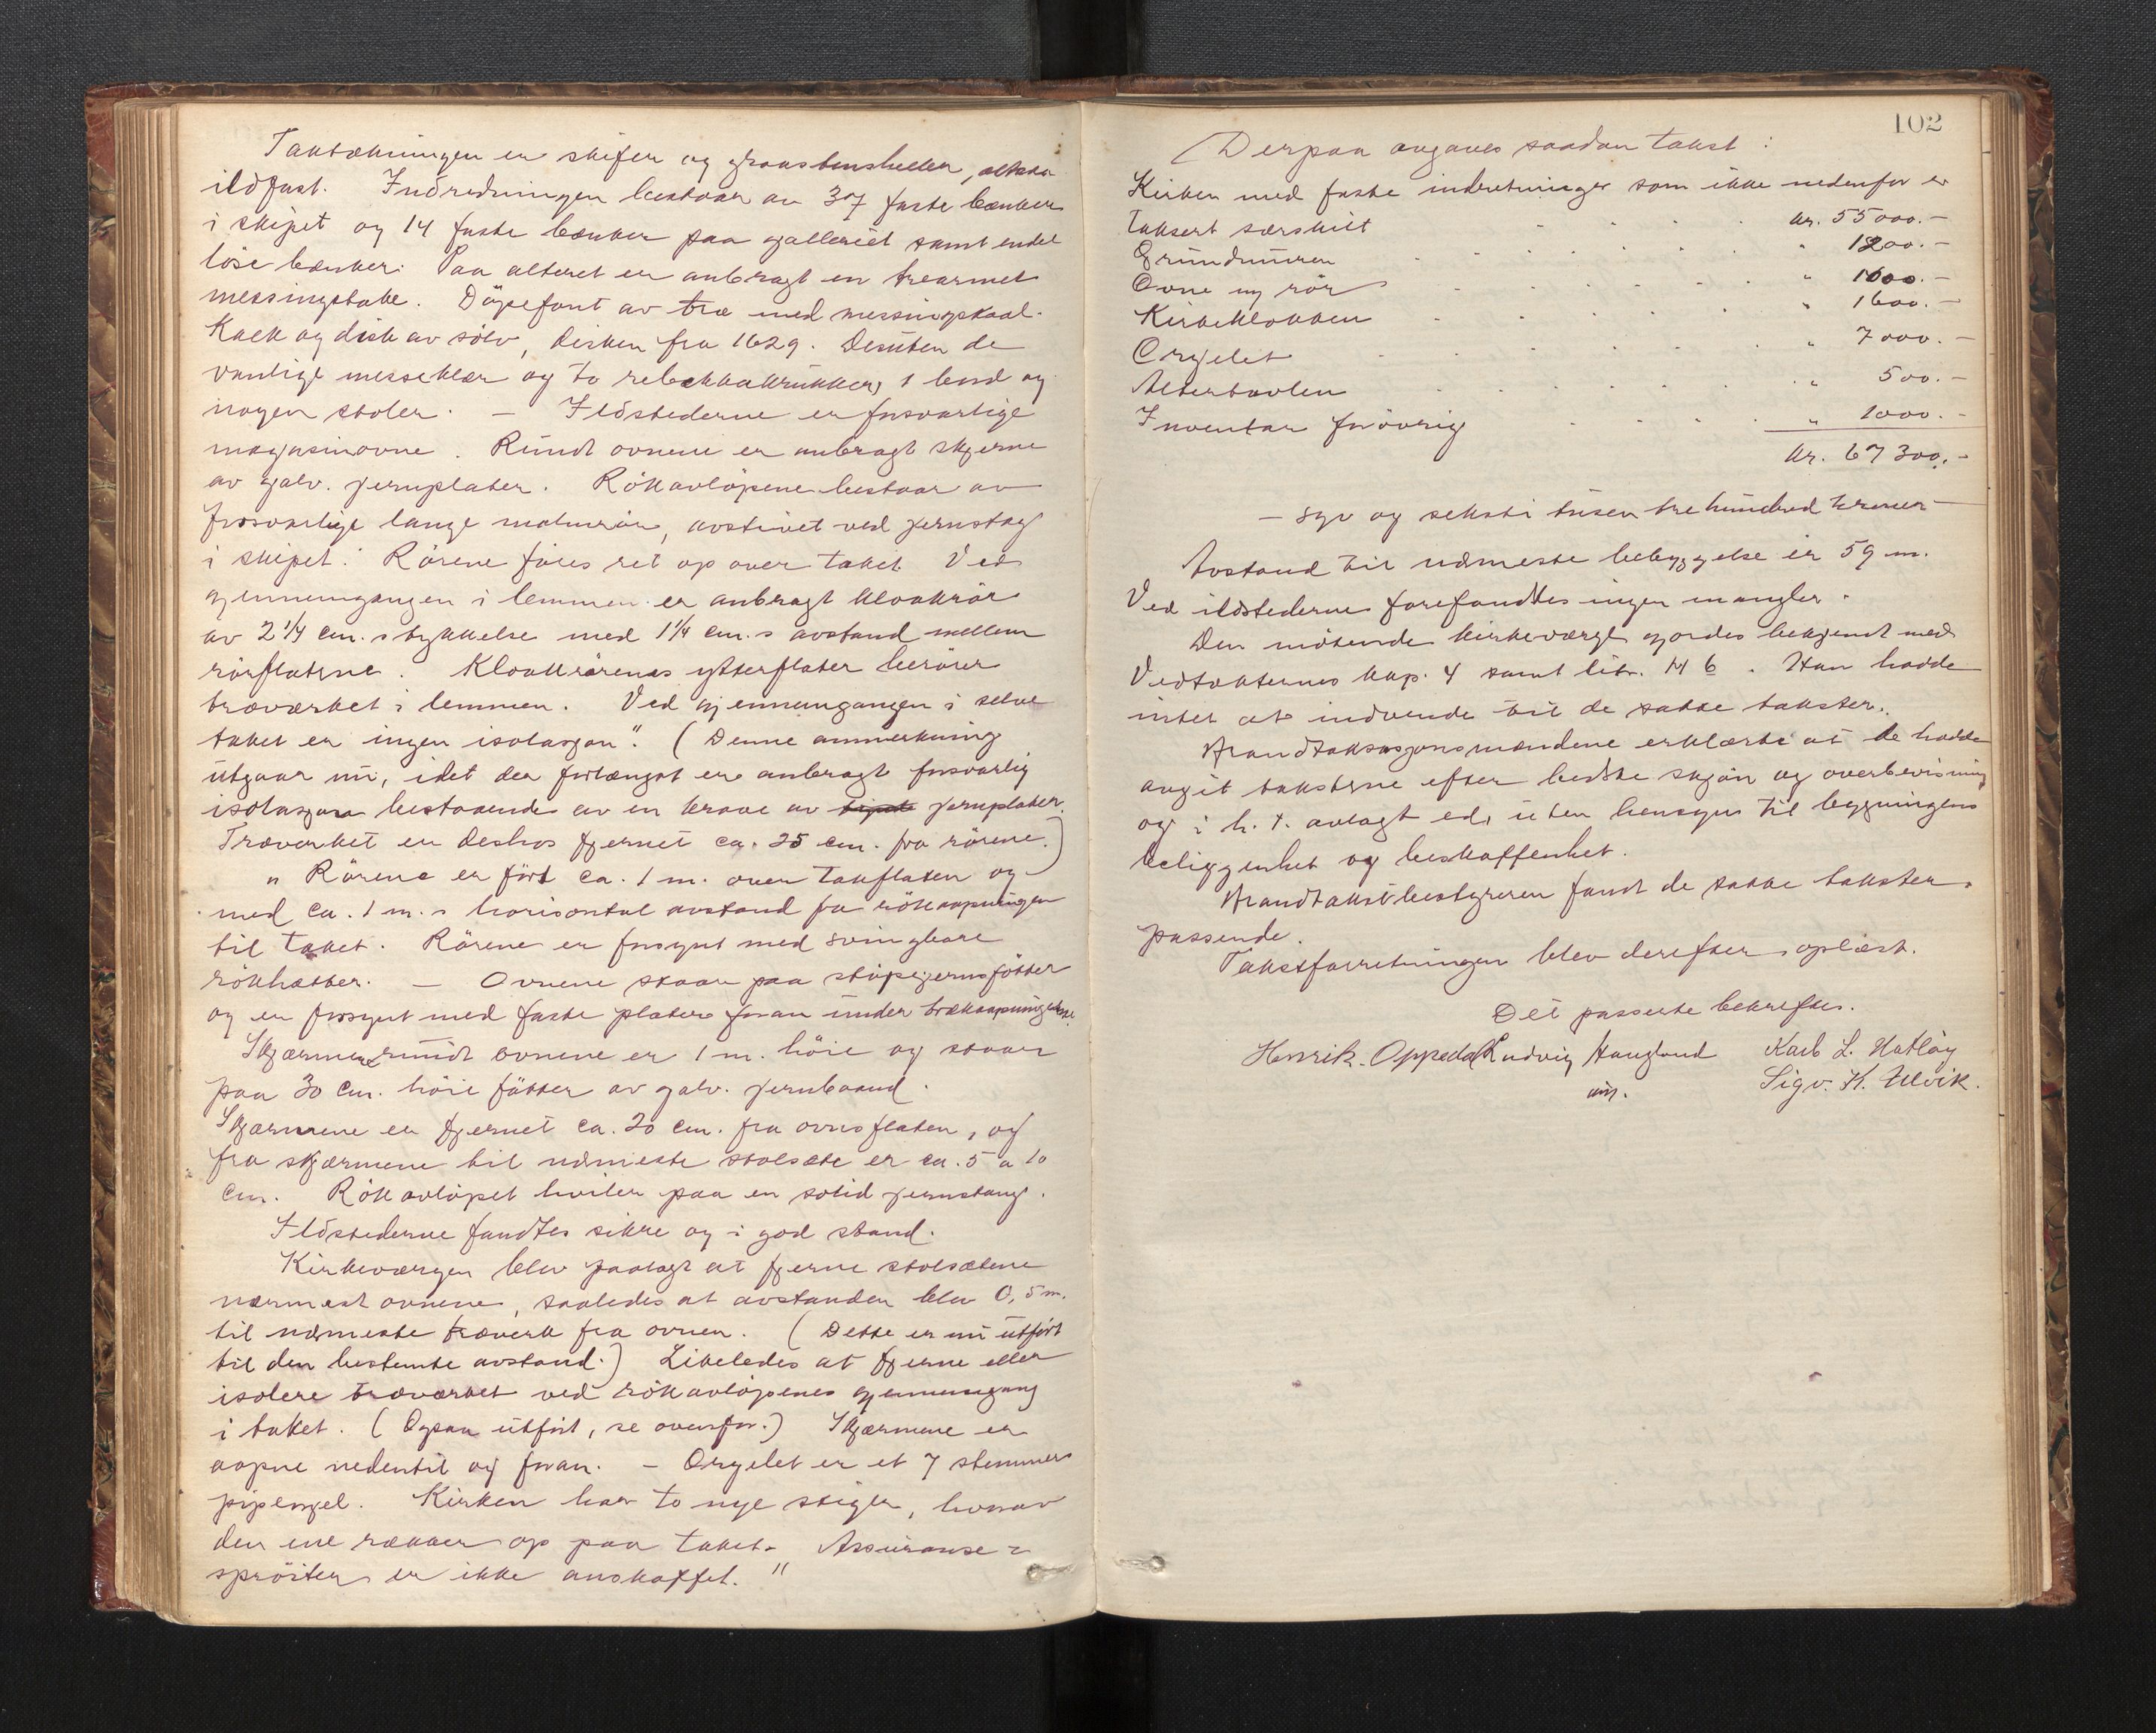 Taktækningen er skifer og graastensheller, altsaa
ildfast. Indredningen bestaar av 37 faste bænker
i skipet og 14 faste bænker paa galleriet samt endel
löse bænker. Paa alteret er anbragt en trearmet
messingstake. Döpefont av træ med messingskaal.
Kalk og disk av sölv, disken fra 1629. Desuten de
vanlige messeklær og to rebekkakrukker, 1 bord og
nogen stoler. — Ildstederne er forsvarlige
magasinovne. Rundt ovnene er anbragt skjerme
av galv. jernplater. Rökavlöpene bestaar av
forsvarlige lange malmrör, avstivet ved jernstag
i skipet. Rörene föres ret op over taket. Ved
gjennemgangen i lemmen er anbragt kloakrör
av 2 1/4 cm.s tykkelse med 1 1/4 cm.s avstand mellem
rörflatene. Kloakrörenes ytterflater berörer
træværket i lemmen. Ved gjennemgangen i selve
taket er ingen isolasjon". (Denne anmerkning
utgaar nu, idet der forlængst er anbragt forsvarlig
isolasjon bestaaende av en krave av jernplater.
Træverket er deshos fjernet ca. 25 cm. fra rörene.)
" Rörene er fört ca. 1 m. over takflaten og
med ca. 1 m.s horisontal avstand fra rökaapningen
til taket. Rörene er forsynt med svingbare
rökhætter. — Ovnene staar paa stöpejernsfötter
og er forsynt med faste plater foran under trækaapningene.
Skjærmene rundt ovnene er 1 m. höie og staar
paa 30 cm. höie fötter av galv. jernbaand.
Skjærmene er fjernet ca. 20 cm. fra ovnsflaten, og
fra skjærmene til nærmeste stolsæte er ca. 5 a 10
cm. Rökavlöpet hviler paa en solid jernstang.
Ildstederne fandtes sikre og i god stand.
Kirkeværgen blev paalagt at fjerne stolsætene
nærmest ovnene, saaledes at avstanden blev 0,5 m.
til nærmeste træverk fra ovnen. (Dette er nu utfört
til den bestemte avstand.) Likeledes at fjerne eller
isolere træværket ved rökavlöpenes gjennemgang
i taket. (Ogsaa utfört, se ovenfor.) Skjærmene er
aapne nedentil og foran. — Orgelet er et 7 stemmers
pipeorgel. Kirken har to nye stiger, hvorav
den ene rækker op paa taket. Assuranse=
spröiter er ikke anskaffet. "
102
Derpaa avgaves saadan takst:
Kirken med faste indretninger som ikke nedenfor er
taksert særskilt kr. 55000.-
Grundmuren " 1200.-
Ovne og rör " 1000.-
Kirkeklokken " 1600.-
Orgelet " 7000.-
Altertavlen " 500.-
Inventar forövrig " 1000.-
kr. 67300.-
— syv og seksti tusen tre hundred kroner —
Avstand til nærmeste bebyggelse er 59 m.
Ved ildstederne forefandtes ingen mangler.
Den mötende kirkeværge gjordes bekjendt med
Vedtækternes kap. 4 samt litr. M 6. Han hadde
intet at indvende til de satte takster.
Brandtaksasjonsmændene erklærte at de hadde
avgit takstene efter bedste skjön og overbevisning
og i h. t. avlagt ed, uten hensyn til bygningens
beliggenhet og beskaffenhet.
Brandtakstbestyreren fandt de satte takster
passende.
Takstforretningen blev derefter oplæst.
Det passerte bekreftes.
Henrik Oppedal Ludvig Haugland Karl L. Hatlöy
Sigv. K. Ulvik.